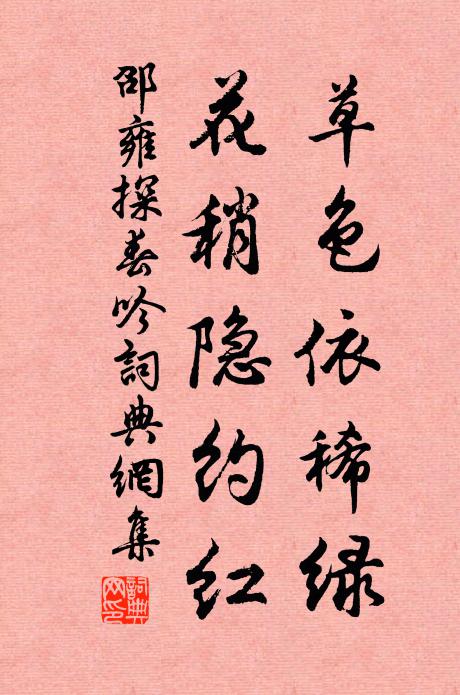 草色依稀绿
花稍隐约红
邵雍探春吟詞典網集
詞典網印